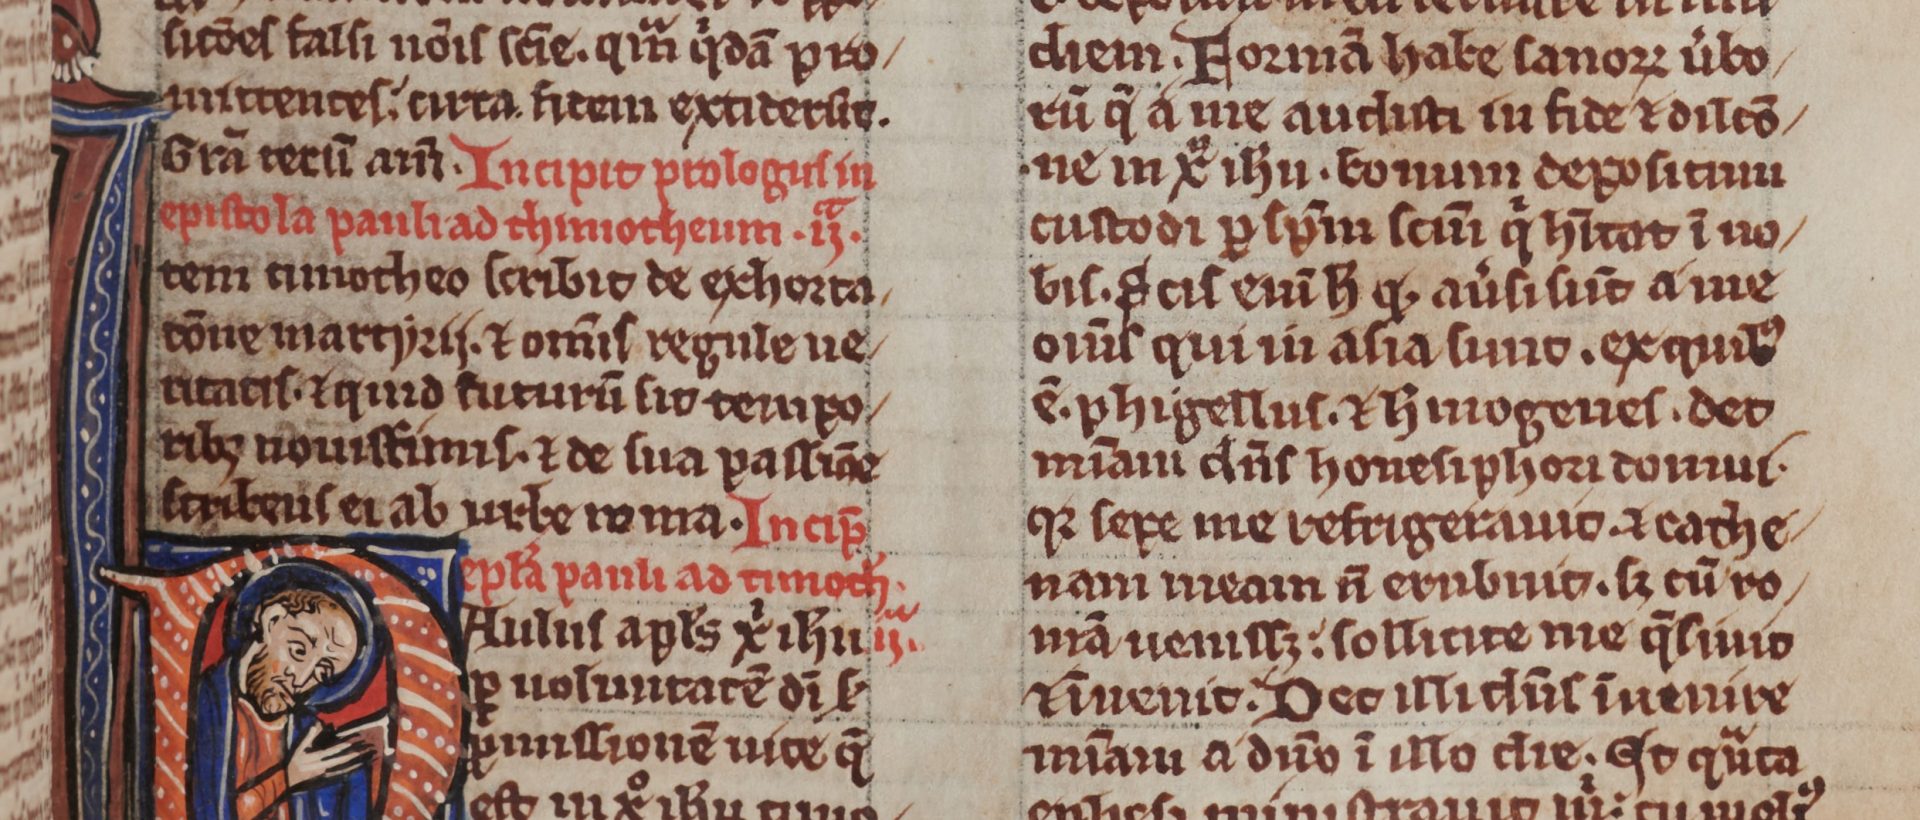 sicōes falsi nōis scīe. qm̄ q̇dā pro/
mittentes. circa fidem exciderūt.
Grā tecū am̄. Incipit prologus in
epistola pauli ad thimotheum .ij.ᵃ
tem timotheo scribit de exhorta/
tōne martyrij. ⁊ om̄is regule ue/
ritatis. ⁊ quid futurū sit tempo/
ribꝫ nouissimis. ⁊ de sua passiōne
scribens ei ab urbe roma. Incip̄
epl̄a pauli ad timoth̄. ij.
Aulus apl̄s xp̄i ihu
ꝑ uoluntatē dī
ꝓmissionē uite q̄
est in xᵒ ihu timo
diem. Formā habe sanoꝝ u̇bo/
rū q̄ a me audisti in fide ⁊ dilcō/
ne in xᵒ ihu. bonum depositum
custodi ꝑ sp̄m scm̄ q̇ hītat ī no/
bis. Scis enī h̄ ꝙ au̇si sūt a me
om̄s qui in asia sunt. ex quibꝰ
ē. phigellus. ⁊ h̄mogenes. det
mīam dn̄s honesiphori domui.
qꝛ sepe me refrigerauit. ⁊ cathe/
nam meam n̄ erubuit. sꝫ cū ro/
mā uenissꝫ. sollicite me q̄siuit
⁊ īuenit. Det illi dn̄s īuenire
mīam a dn̄o ī illo die. Et quāta
ephesi ministrauit m̄. tu meliꝰ